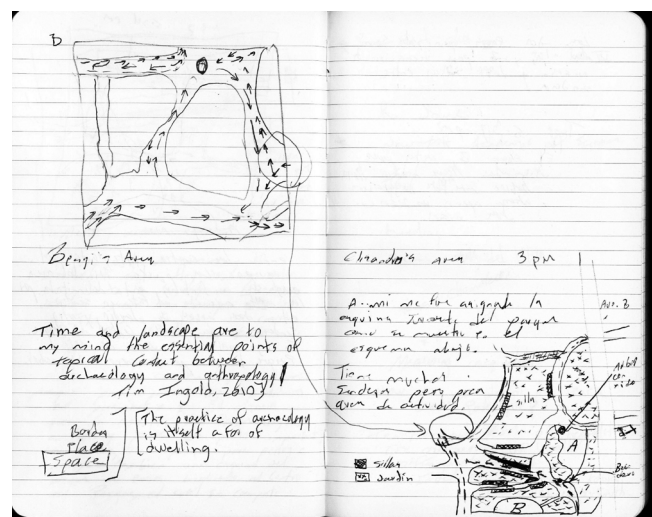 D
Benji's Area
Time and landscape are to
my mind the essential points of
topical contact between
archaeology and anthropology
Tim Ingold, 2010
Border
Place
Space
The practice of archaeology
is itself a for of
dwelling.
Chandra's area 3 pm
A mi me fue asignada la
esquina del parque
como se muestra en el
esquema abajo.
Tiene muchos
pero poca
area de actividad.
Ave. 3
silla
A
B
Sillas
Jardín